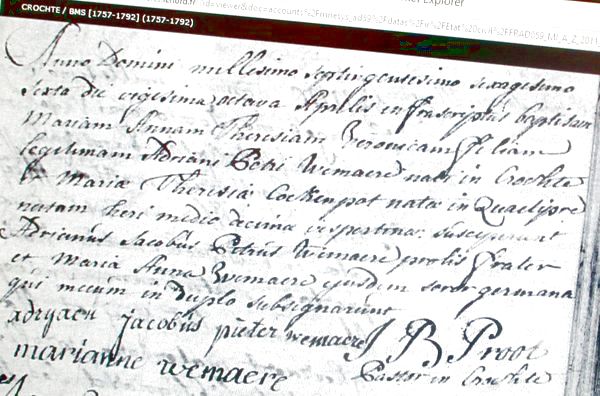 CROCHTE / BMS [1757-1792] (1757-1792)
Explorer
Anno Domini millesimo septingentesimo sexagesimo
sexta die vigesima octava Aprilis infrascriptus baptisavi
Mariam Annam Theresiam Veronicam filiam
legitimam Adriani Petri Wemaere nati in Crochte
& Mariæ Theresiæ Cockenpot natæ in Quaedipre
natam heri medio decima vespertina: susceperunt
Adrianus Jacobus Petrus Wemaere prolis frater
et Maria Anna Wemaere ejusdem soror germana
qui mecum in duplo subsignarunt
adryaen jacobus pieter wemaere J B Proot
marianne wemaere Pastor in Crochte